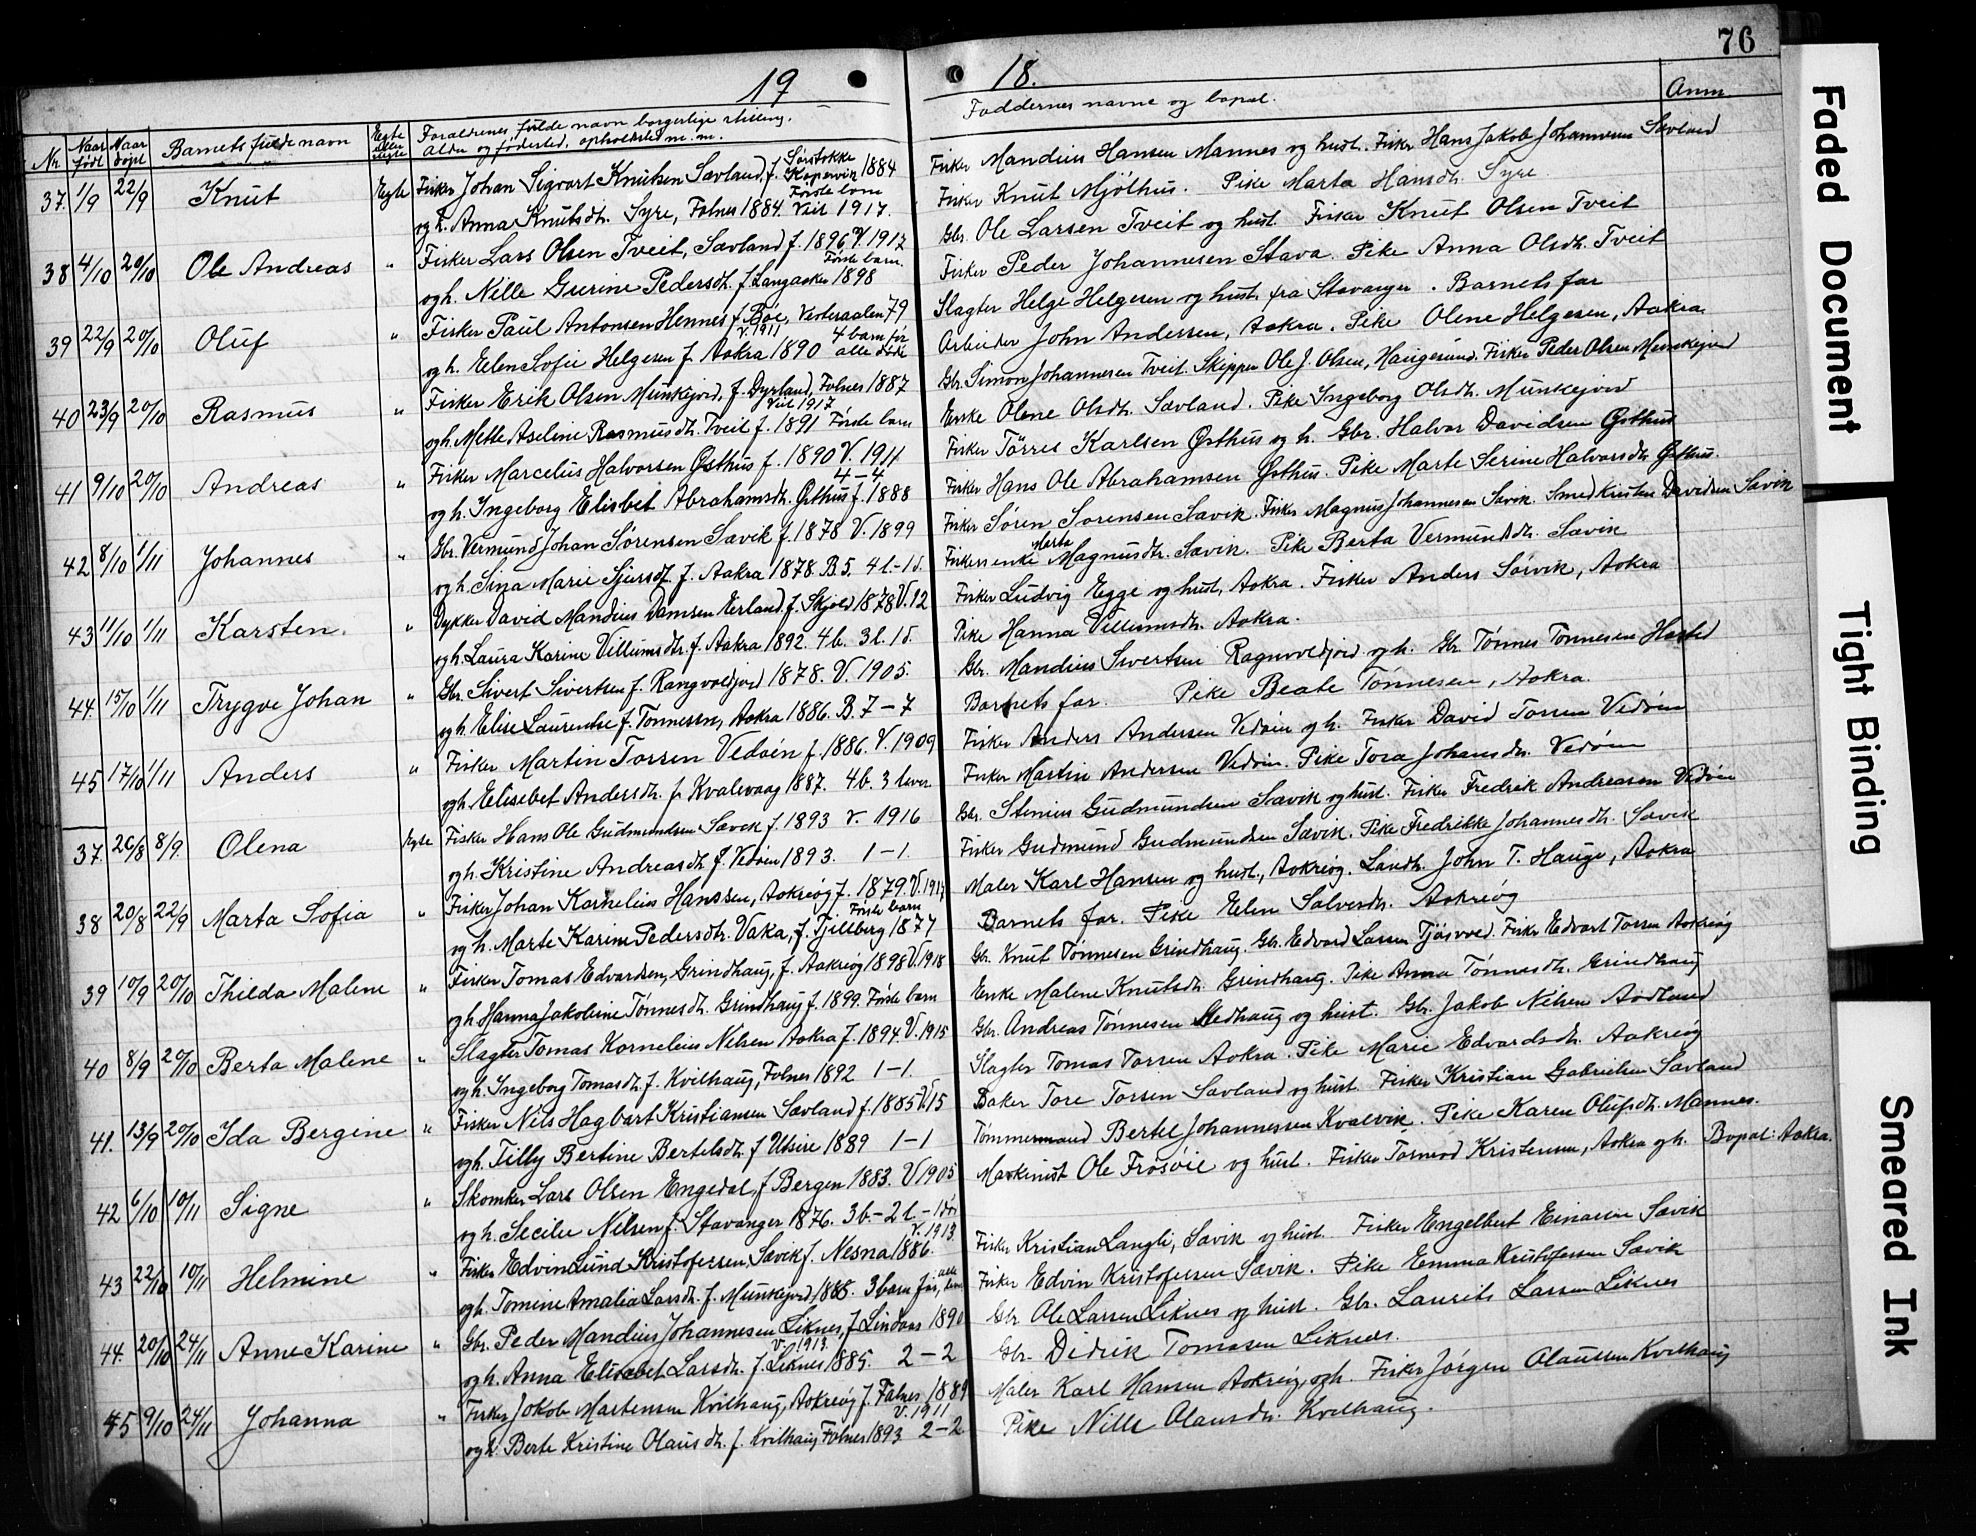 76
19
18.
Nr. Naar født Naar døpt Barnets fulde navn Egte eller uegte Foraldrenes fulde navn borgerlige stilling.
Alder og fødested, opholdsted m. m.
Faddernes navne og bopæl.
Anm
37. 1/9 22/9 Knut Egte Fisker Johan Sigvart Knutsen Sævland, f. Sørstokke Kopervik 1884
Første barn
og h. Anna Knutsdtr. Syre, Falnes 1884. Viet 1917.
Fisker Mandius Hansen Mannes og hust. Fisker Hans Jakob Johannesen Sævland
Fisker Knut Mjølhus. Pike Marta Hansdtr. Syre
38 4/10 20/10 Ole Andreas " Fisker Lars Olsen Tveit, Sævland f. 1896 V. 1917
Første barn.
og h. Nille Gurine Pedersdtr. f. Langaaker 1898
Gbr. Ole Larsen Tveit og hust. Fisker Knut Olsen Tveit
Fisker Peder Johannesen Stava. Pike Anna Olsdtr. Tveit
39 22/9 20/10 Oluf " Fisker Paul Antonsen Hennes f. Bøe, Vesteraalen 79
V. 1911 4 barn før
og h. Elen Sofie Helgesen f. Aakra 1890 alle døde
Slagter Helge Helgesen og hust. fra Stavanger. Barnets far
Arbeider John Andersen, Aakra. Pike Olene Helgesen, Aakra.
40 23/9 20/10 Rasmus " Fisker Erik Olsen Munkejord, f. Dyrland, Falnes 1887
Viet 1917
og h. Mette Aseline Rasmusdtr. Tveit f. 1891 Første barn
Gbr. Simon Johannesen Tveit. Skipper Ole J. Olsen, Haugesund. Fisker Peder Olsen Munkejord
Enke Olene Olsdtr. Sævland. Pike Ingeborg Olsdtr. Munkejord
41 9/10 20/10 Andreas " Fisker Marcelius Halvorsen Østhus f. 1890 V. 1911
4 – 4
og h. Ingeborg Elisbet Abrahamsdtr. Østhus f. 1888
Fisker Tørres Karlsen Østhus og h. Gbr. Halvor Davidsen Østhus
Fisker Hans Ole Abrahamsen Østhus. Pike Marte Serine Halvorsdtr. Østhus.
42 8/10 1/11 Johannes " Gbr. Vermund Johan Sørensen Sævik f. 1878 V. 1899
og h. Sina Marie Sjursdtr. f. Aakra 1878. B. 5. 4 l. – 1 d.
Fisker Søren Sørensen Sævik. Fisker Magnus Johannesen Sævik. Smed Kristen Davidsen Sævik
Fisker enke Marta Magnusdtr. Sævik. Pike Berta Vermundsdtr. Sævik
43 11/10 1/11 Karsten. " Dykker David Mandius Danisen Eerland. f. Skjold 1878 V. 12
og h. Laura Karine Villumsdtr. f. Aakra 1892. 4 b. 3 l. 1 d.
Fisker Ludvig Egge og hust. Aakra. Fisker Anders Sørvik, Aakra
Pike Hanna Villumsdtr. Aakra.
44. 15/10 1/11 Trygve Johan " Gbr. Sivert Sivertsen f. Rangvoldjord 1878. V. 1905.
og h. Elise Laurentse f. Tønnesen, Aakra 1886. B. 7 – 7
Gbr. Mandius Sivertsen Ragnvoldjord og h. Gbr. Tønnes Tønnesen Hæstad
Barnets far. Pike Beate Tønnesen, Aakra.
45 17/10 1/11 Anders " Fisker Martin Torsen Vedøen f. 1886. V. 1909
og h. Elisebet Andersdtr. f. Kvalevaag 1887. 4 b. 3 lever
Fisker Anders Andersen Vedøen og h. Fisker David Torsen Vedøen
Fisker Martin Andersen Vedøen. Pike Tora Johansdtr. Vedøen
37. 26/8 8/9. Olena Egte Fisker Hans Ole Gudmundsen Sævik f. 1893 v. 1916
og h. Kristine Andreasdtr. f. Vedøen 1893. 1 – 1.
Gbr. Stenius Gudmundsen Sævik og hust. Fisker Fredrik Andreasen Vedøen
Fisker Gudmund Gudmundsen Sævik. Pike Fredrikke Johannesdtr. Sævik
38 20/8 22/9 Marta Sofia " Fisker Johan Kornelius Hanssen, Aakreøg f. 1879. V. 1917
Første barn
og h. Marte Karine Pedersdtr. Vaka, f. Fjellberg 1877
Maler Karl Hansen og hust., Aakreøg. Landh. John T. Hauge, Aakra
Barnets far. Pike Elen Salvesdtr. Aakreøg
39 10/9 20/10 Thilda Malene " Fisker Tomas Edvardsen, Grindhaug, f. Aakreøg 1898 V. 1918
og h. Hanna Jakobine Tønnesdtr. Grindhaug f. 1899. Første barn
Gbr. Knut Tønnesen Grindhaug. Gbr. Edvard Larsen Tjøsvold. Fisker Edvart Torsen Aakreøg
Enke Malene Knutsdtr. Grindhaug. Pike Anna Tønnesdtr. Grindhaug
40 8/9 20/10 Berta Malene " Slagter Tomas Kornelius Nelsen Aakra f. 1894. V. 1915
og h. Ingeborg Tomasdtr. f. Kvilhaug, Falnes 1892 1 – 1.
Gbr. Andreas Tønnesen Medhaug og hust. Gbr. Jakob Nilsen Aadland
Slagter Tomas Torsen Aakra. Pike Marie Edvardsdtr. Aakreøg
41. 13/9 20/10 Ida Bergine " Fisker Nils Hagbart Kristiansen Sævland f. 1885 V. 15
og h. Tilly Bertine Bertelsdtr. f. Utsire 1889 1 – 1
Baker Tore Torsen Sævland og hust. Fisker Kristian Gabrielsen Sævland
Tømmermand Bertel Johannessen Kvalvik. Pike Karen Olufsdtr. Mannes.
42 6/10 10/11 Signe " Skomker Lars Olsen Engedal, f. Bergen 1883. V 1905
og h. Secilie Nilsen f. Stavanger 1876. 3 b. – 2 l – 1 død
Maskinist Ole Frøsøie og hust. Fisker Tormod Kristensen, Aakra og h. Bopæl: Aakra.
43 22/10 10/11 Helmine " Fisker Edvin Lund Kristofersen, Sævik f. Nesna 1886. V. 1913
og h. Tomine Amalia Larsdtr. f. Munkejord 1888. 3 barn før, alle lever
Fisker Kristian Langli, Sævik og hust. Fisker Engelbert Einarsen Sævik
Fisker Edvin Kristofersen Sævik. Pike Emma Kristofersen Sævik
44. 20/10 24/11 Anne Karine " Gbr. Peder Mandius Johannesen Liknes, f. Lindaas 1890
V. 1913
og h. Anna Elisabet Larsdtr. f. Liknes 1885. 2 – 2
Gbr. Ole Larsen Liknes og hust. Gbr. Laurits Larsen Liknes
Gbr. Didrik Tomasen Liknes.
45 9/10 24/11 Johanna " Fisker Jakob Martensen Kvilhaug, Aakreøg f. Falnes 1889
V. 1911
og h. Berte Kristine Olausdtr. f. Kvilhaug Falnes 1893 2 – 2
Maler Karl Hansen Aakreøg, og h. Fisker Jørgen Olaussen Kvilhaug
Pike Nille Olausdtr. Kvilhaug.
Faded Document
Tight Binding
Smeared Ink